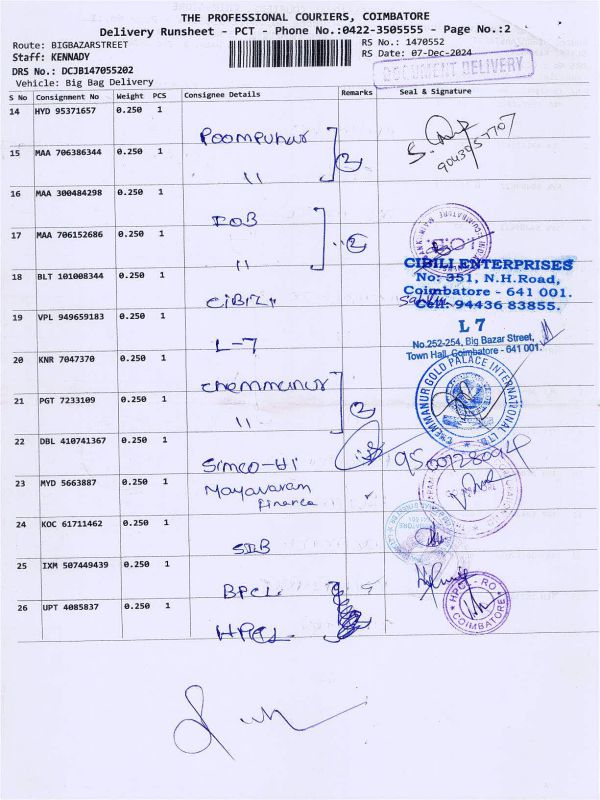 THE PROFESSIONAL COURIERS, COIMBATORE
Delivery Runsheet - PCT - Phone No.:0422-3505555 - Page No.:2
Route: BIGBAZARSTREET
RS No.: 1470552
Staff: KENNADY
RS Date: 07-Dec-2024
DRS No.: DCJB147055202
DOCUMENT DELIVERY
Vehicle: Big Bag Delivery
S No Consignment No Weight PCS Consignee Details Remarks Seal & Signature
14 HYD 95371657 0.250 1
Poompuhar
15 MAA 706386344 0.250 1
2
"
16 MAA 300484298 0.250 1
IOB
17 MAA 706152686 0.250 1
2
"
CIBILI ENTERPRISES
No: 351, N.H.Road,
Coimbatore - 641 001.
Cell: 94436 83855.
18 BLT 101008344 0.250 1
CiBiLi
19 VPL 949659183 0.250 1
L 7
No.252-254, Big Bazar Street,
Town Hall, Coimbatore - 641 001.
L-7
20 KNR 7047370 0.250 1
chemmanur
CHEMMANUR GOLD PALACE INTERNATIONAL LTD.
21 PGT 7233109 0.250 1
2
"
22 DBL 410741367 0.250 1
Simco-
23 MYD 5663887 0.250 1
Mayavaram
Finance
24 KOC 61711462 0.250 1
SIB
25 IXM 507449439 0.250 1
BPCL
26 UPT 4085837 0.250 1
HPCL - RO
COIMBATORE
HPCL